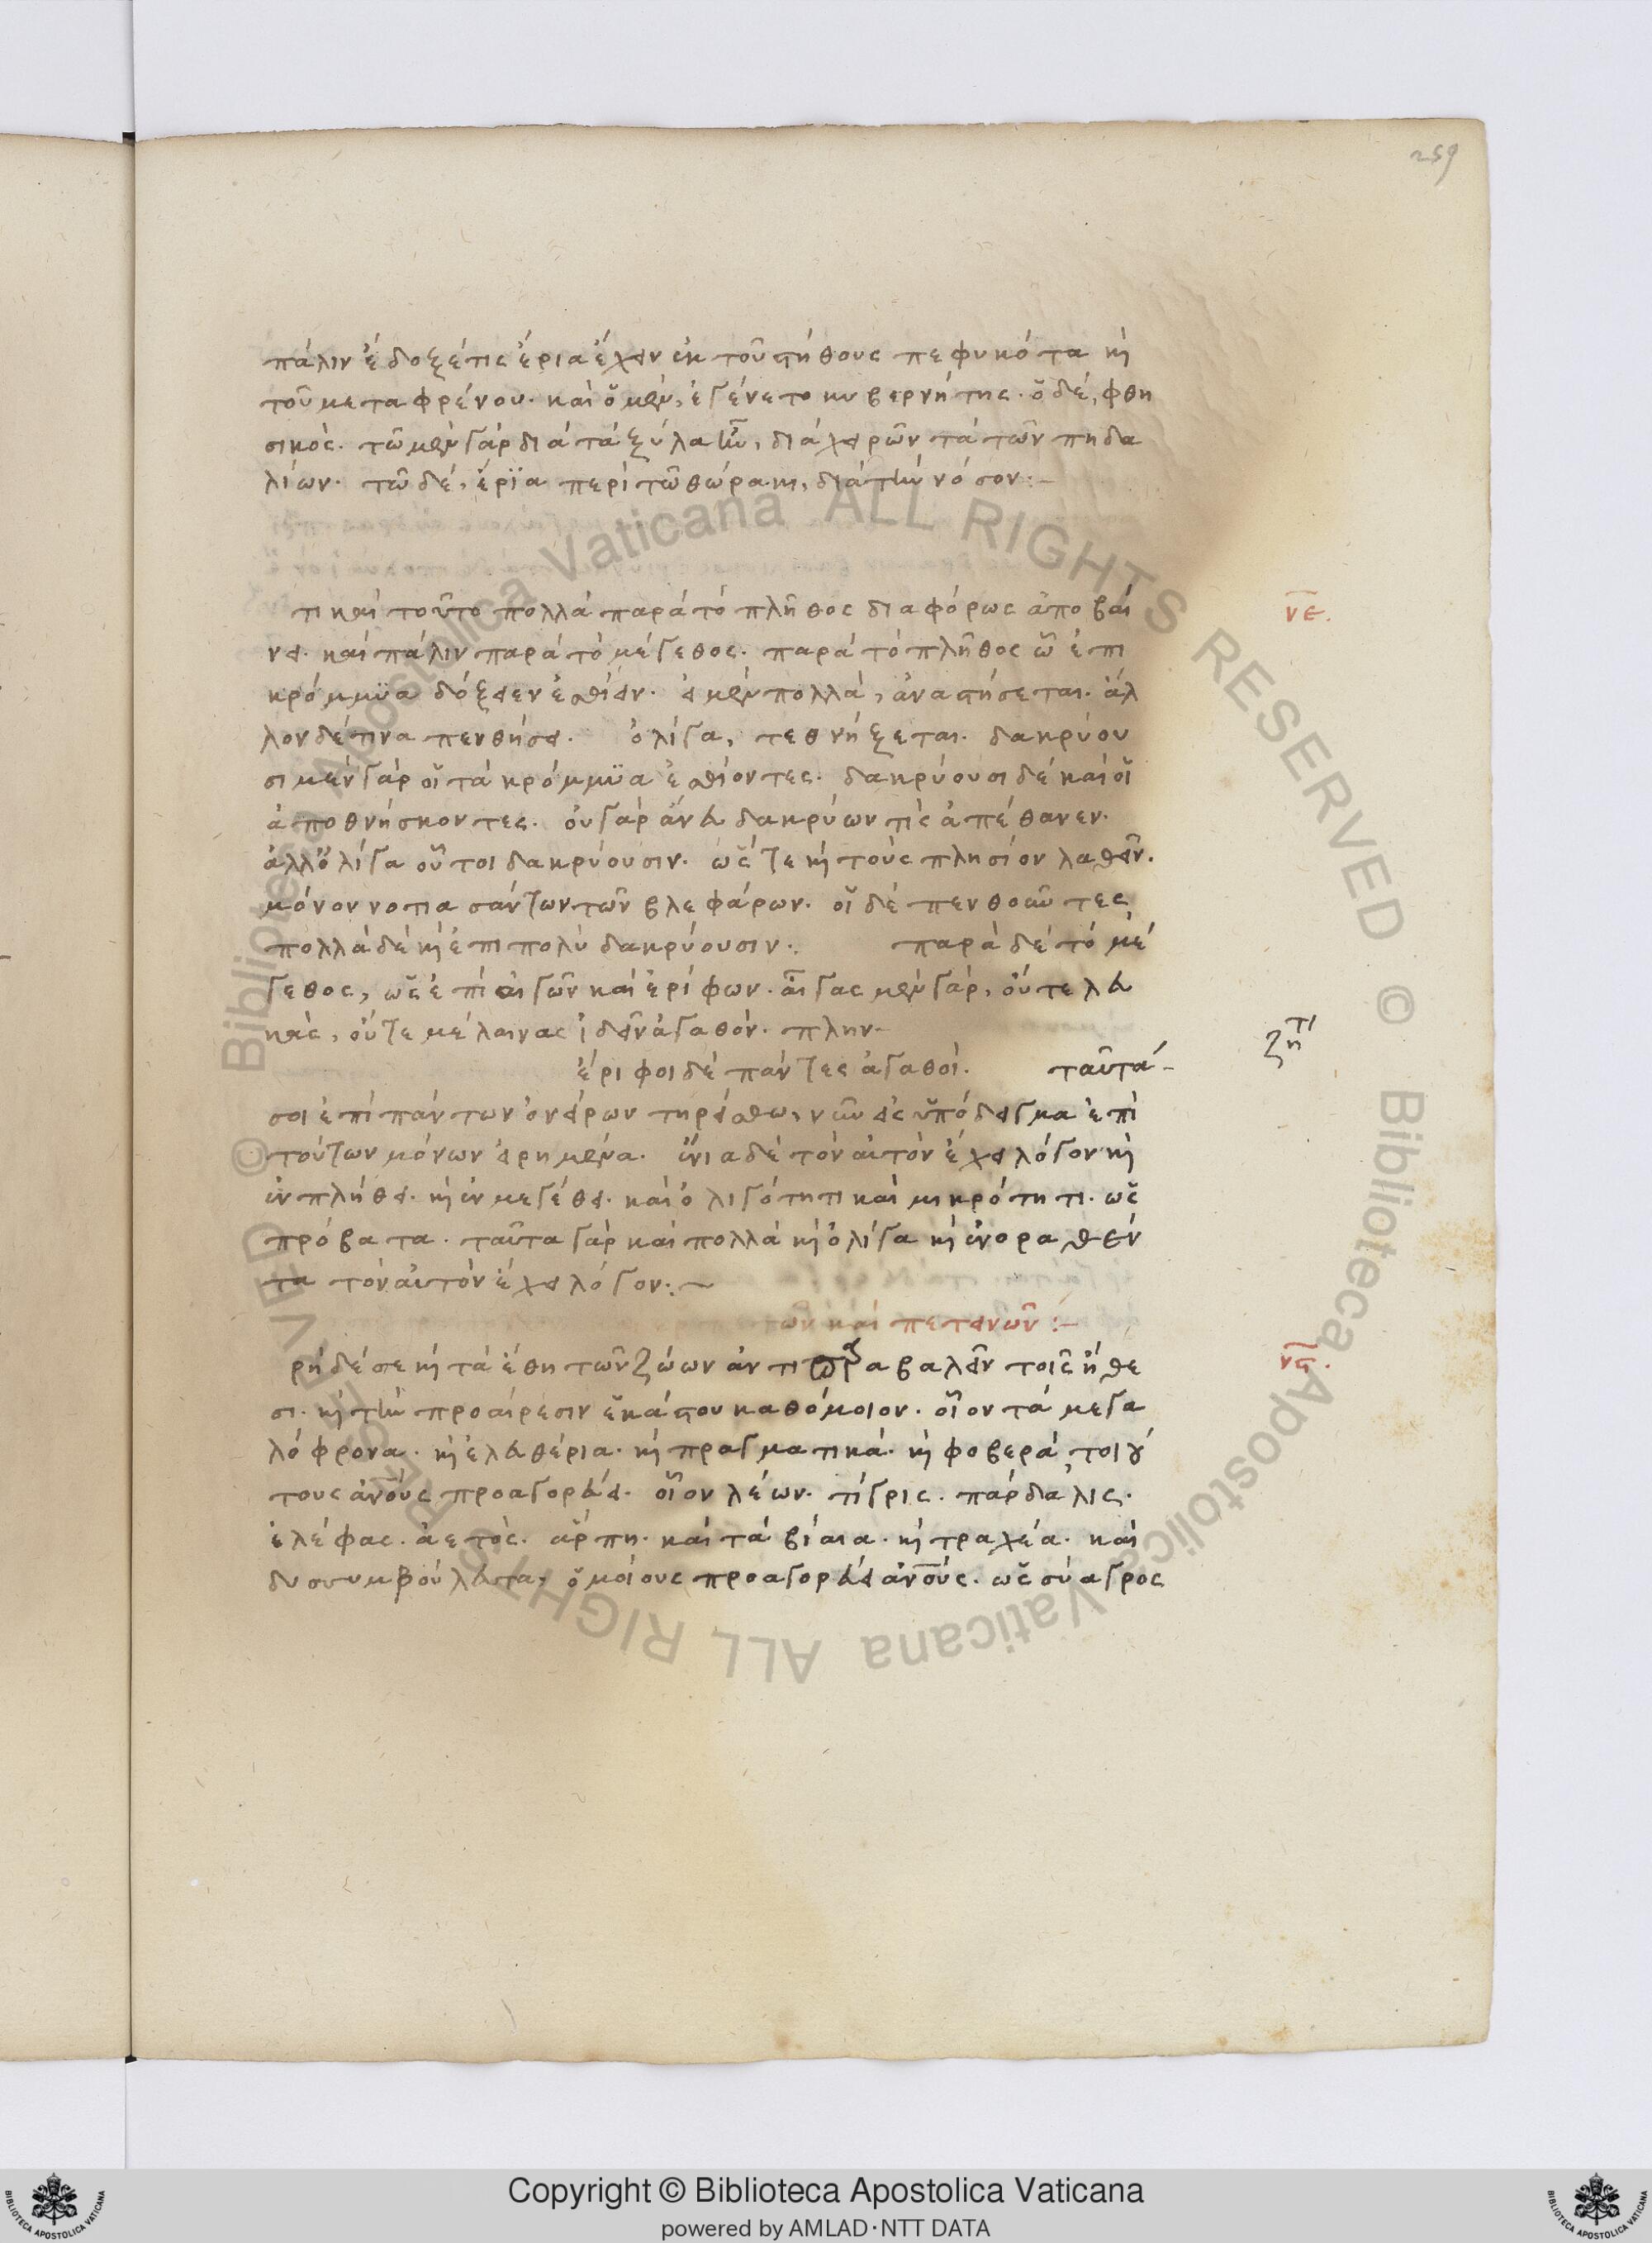 259
πάλιν ἔδοξέ τις ἔρια ἔχειν ἐκ τοῦ στήθους πεφυκότα κὴ
τοῦ μεταφρένου. καὶ ὁ μὲν, ἐγένετο κυβερνήτης. ὁ δέ, φθη
σικός. τῶ μὲν γὰρ διὰ τὰ ξύλα ἦν, διὰ χειρῶν τὰ τῶν πηδα
λίων. τῶ δέ, ἔρϊα περὶ τῶ θώρακι, διὰ τὴν νόσον:–
τι καὶ τοῦτο πολλὰ παρὰ τὸ πλῆθος διαφόρως ἀποβαί
νει. καὶ πάλιν παρὰ τὸ μέγεθος. παρὰ τὸ πλῆθος ὧ ἐπι
κρόμμϋα δόξειεν ἐσθίειν. εἰ μὲν πολλά, ἀναστήσεται. ἄλ
λον δέ τινα πενθήσει. ὀλίγα, τεθνήξεται. δακρύου
σι μὲν γὰρ οἱ τὰ κρόμμϋα ἐσθίοντες. δακρύουσι δὲ καὶ οἱ
ἀποθνήσκοντες. οὐ γὰρ ἄνευ δακρύων τὶς ἀπέθανεν.
ἀλλ' ὀλίγα οὗτοι δακρύουσιν. ὥστε κὴ τοὺς πλησίον λαθεῖν.
μόνον νοτιασάντων τῶν βλεφάρων. οἱ δὲ πενθοῦντες
πολλὰ δὲ κὴ ἐπιπολὺ δακρύουσιν: παρὰ δὲ τὸ μέ
γεθος, ὡς ἐπὶ αἰγῶν καὶ ἐρίφων. αἶγας μὲν γὰρ, οὔτε λευ
κὰς, οὔτε μέλαινας ἰδεῖν ἀγαθόν. πλην
ζητι
ἔριφοι δὲ πάντες ἀγαθοί. ταῦτά
σοι ἐπὶ πάντων ὀνείρων τηρείσθω, νῦν εἰς ὑπόδειγμα ἐπὶ
τούτων μόνων εἰρημένα. ἔνια δὲ τὸν αὐτὸν ἔχει λόγον κὴ
ἐν πλήθει. κὴ ἐν μεγέθει. καὶ ὀλιγότητι καὶ μικρότητι. ὡς
πρόβατα. ταῦτα γὰρ καὶ πολλὰ κὴ ὀλίγα κὴ ἐνοραθέν
τα τὸν αὐτὸν ἔχει λόγον:~
των καὶ πετεινῶν:–
ρὴ δέ σε κὴ τὰ ἔθη τῶν ζώων ἀντιπαραβαλεῖν τοῖς ἤθε
σι. κὴ τὴν προαίρεσιν ἑκάστου καθόμοιον. οἷον τὰ μεγα
λόφρονα. κὴ ἐλευθέρια. κὴ πραγματικά. κὴ φοβερὰ τοιού
τους ἀνους προαγορεύει. οἷον λέων. τίγρις. πάρδαλις.
ἐλέφας. ἀετός. ἅρπη. καὶ τὰ βίαια. κὴ τραχέα. καὶ
δυσσυμβούλευτα, ὁμοίους προαγορεύει ἀνους. ὡς σύαγρος
νε.
νϛ.
Copyright © Biblioteca Apostolica Vaticana
powered by AMLAD·NTT DATA
© Biblioteca Apostolica Vaticana ALL RIGHTS RESERVED © Biblioteca Apostolica Vaticana ALL RIGHTS RESERVED
BIBLIOTECA APOSTOLICA VATICANA
BIBLIOTECA APOSTOLICA VATICANA